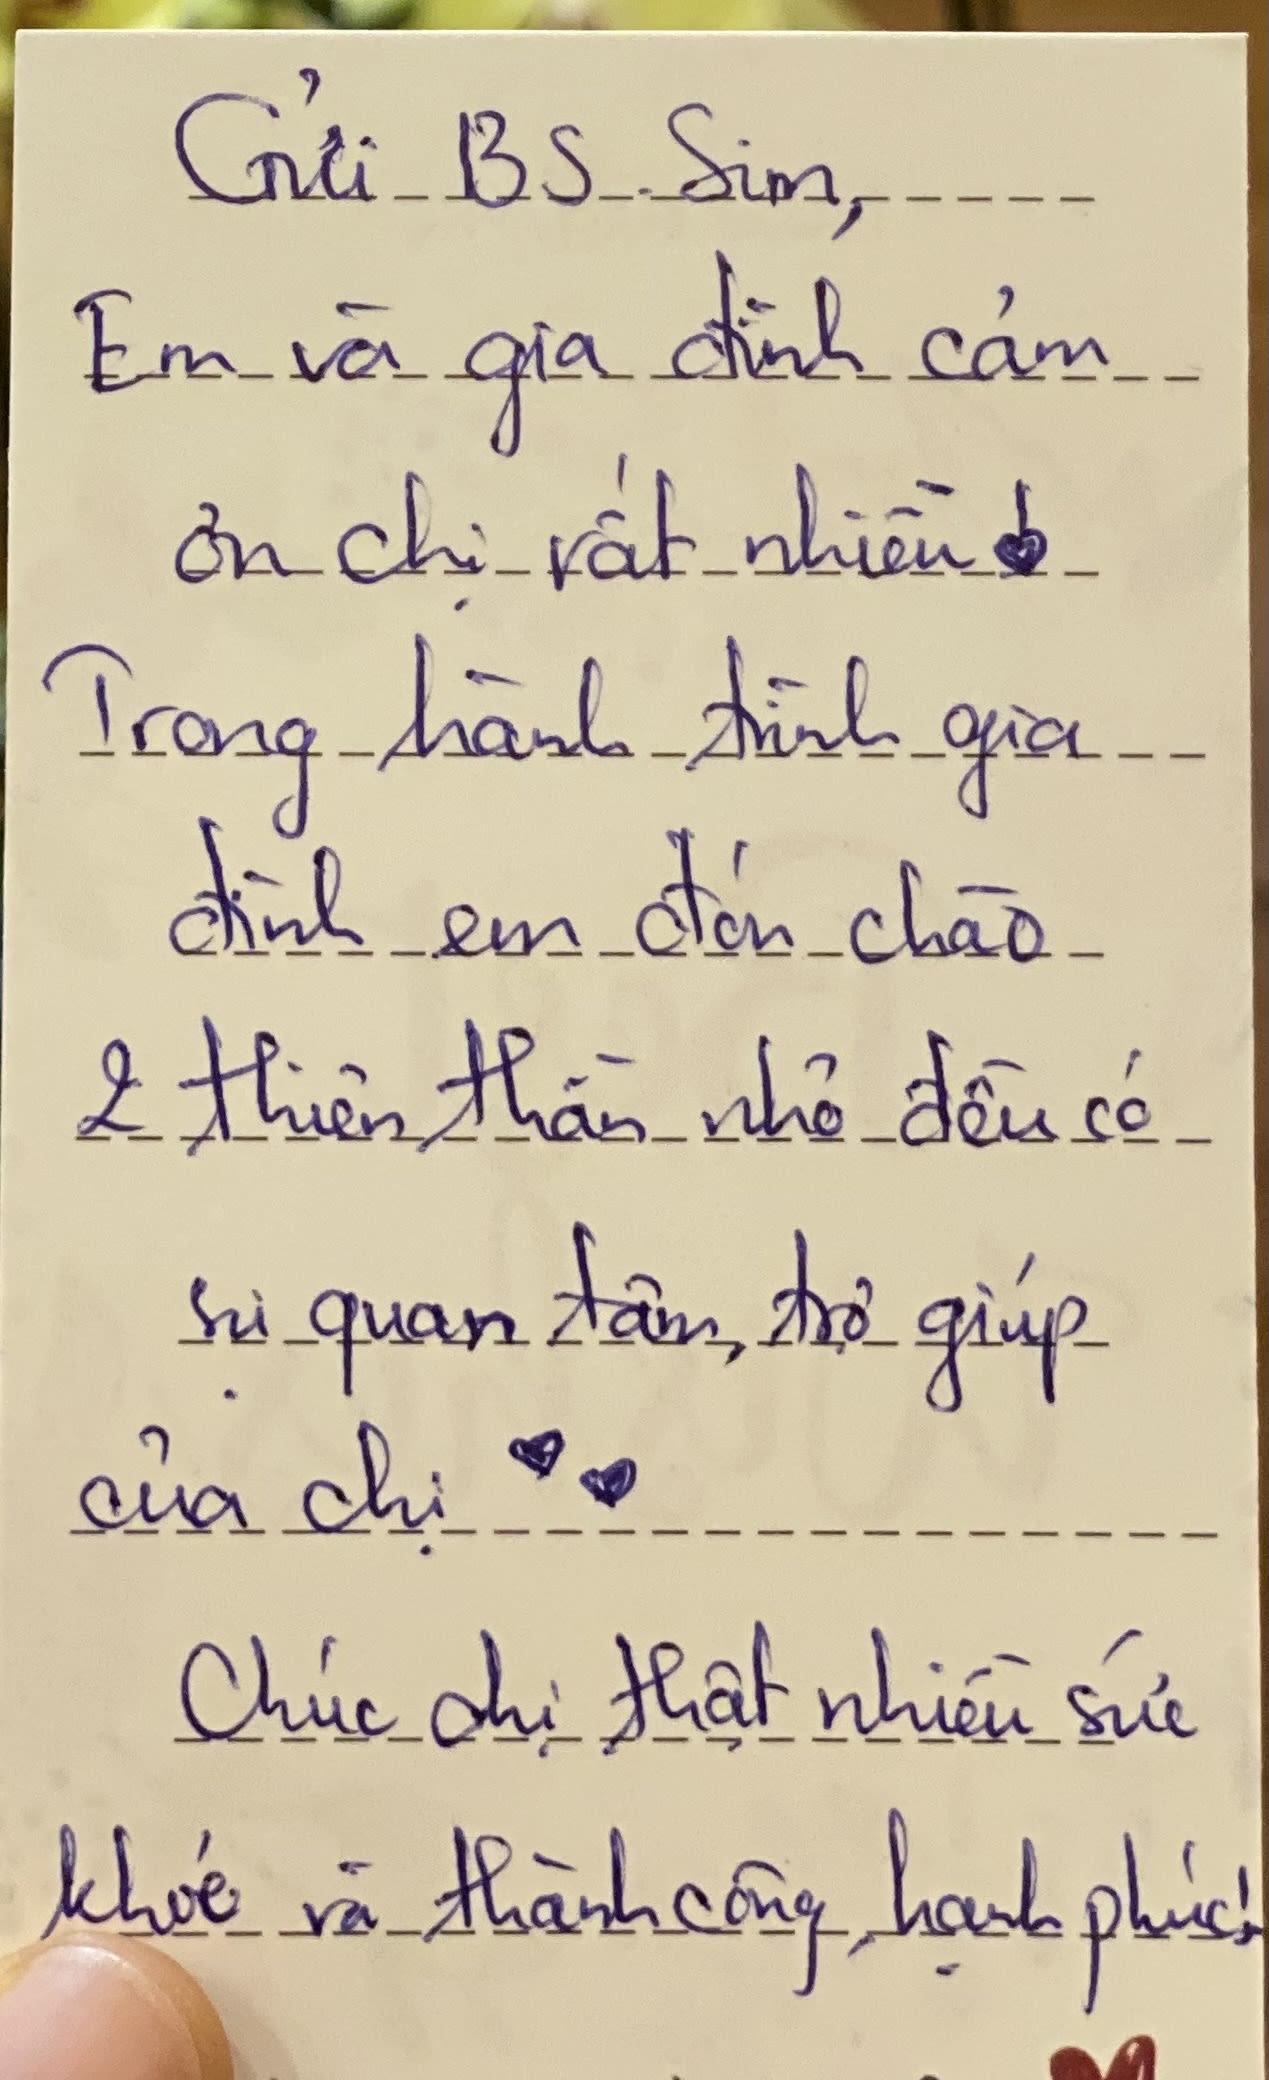 Gửi BS. Sim,
Em và gia đình cảm
ơn chị rất nhiều!
Trong hành trình gia
đình em đón chào
2 thiên thần nhỏ đều có
sự quan tâm, trợ giúp
của chị
Chúc chị thật nhiều sức
khoẻ và thành công, hạnh phúc!